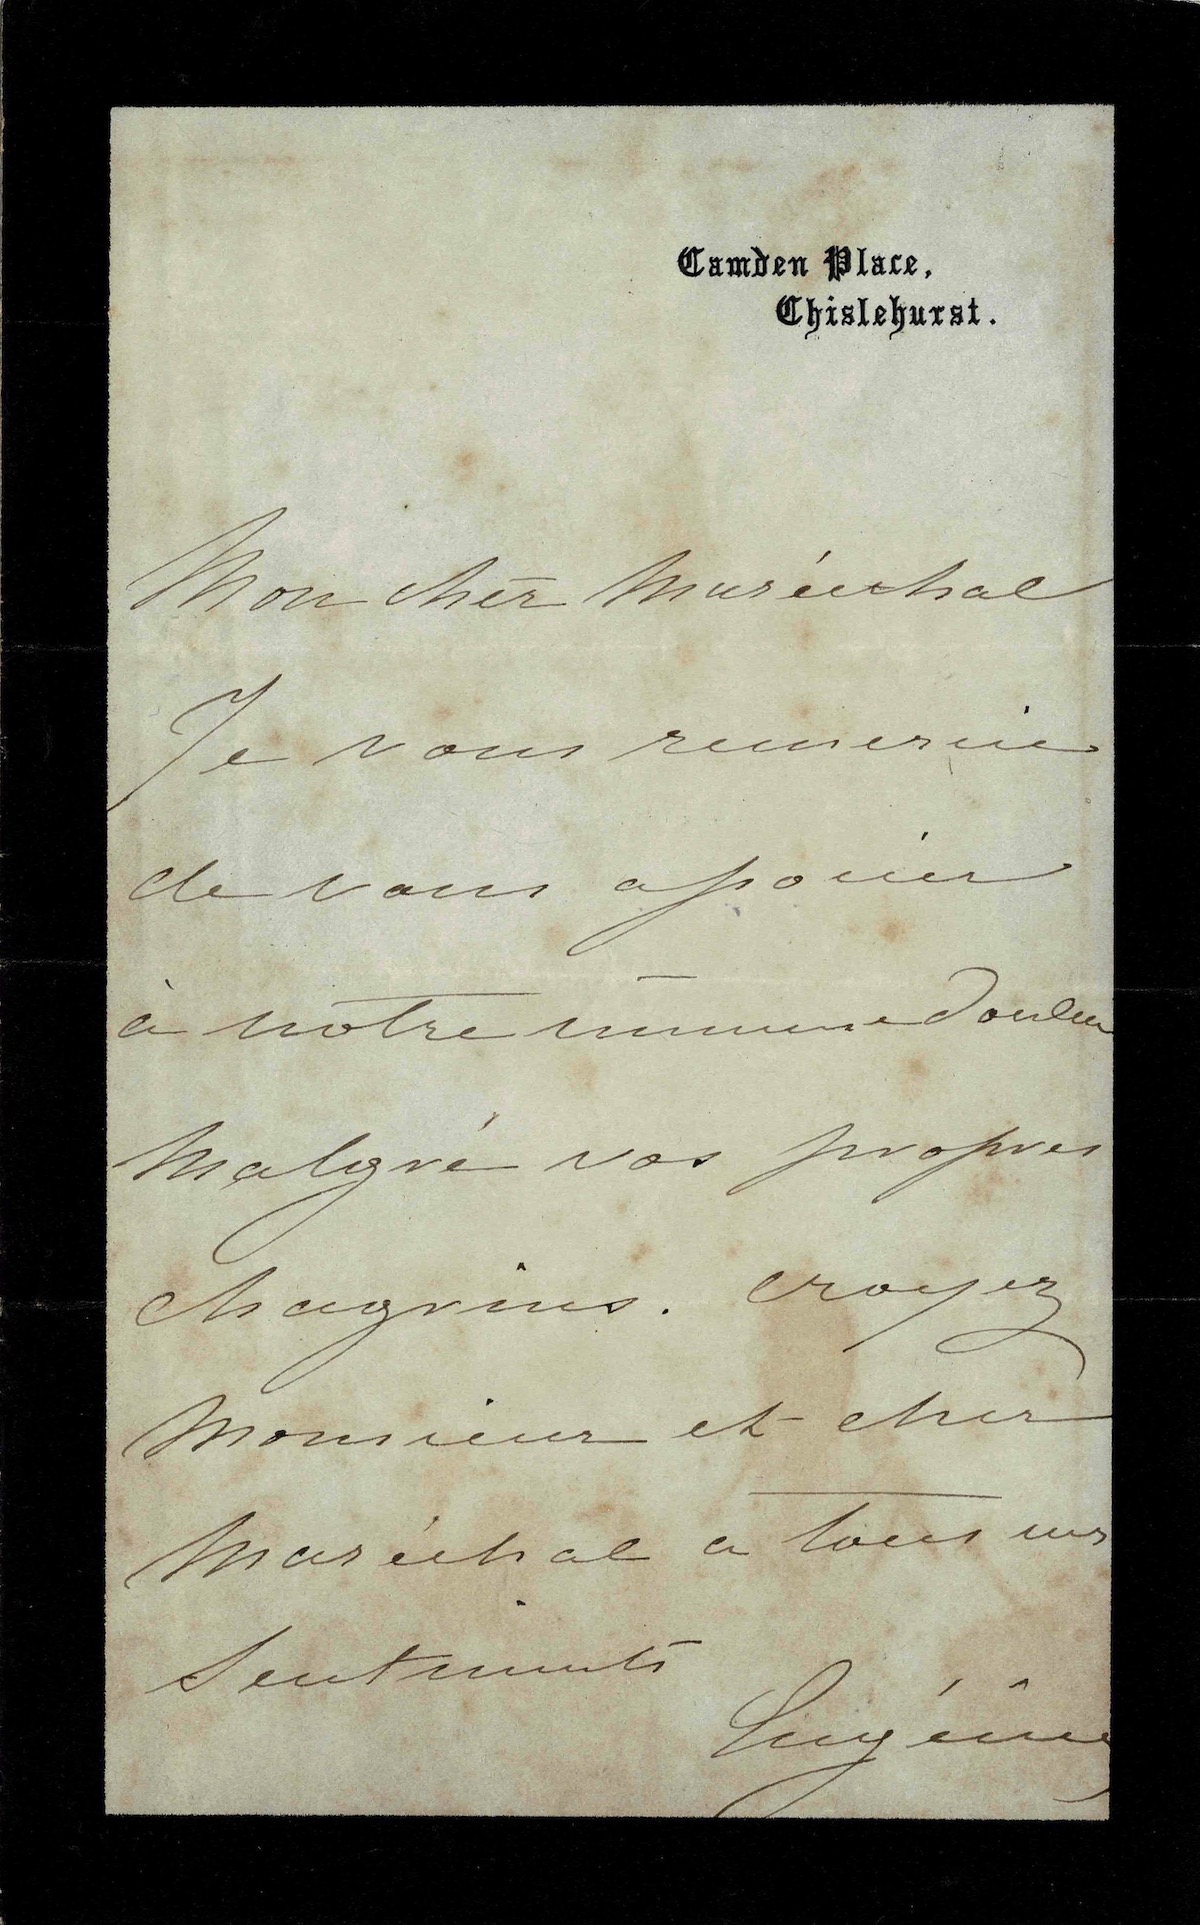 Camden Place,
Chislehurst.
Mon cher Maréchal
Je vous remercie
de vous associer
à notre immense douleur
Malgré vos propres
chagrins. croyez
Monsieur et cher
Maréchal a tous mes
Sentiments
Eugénie